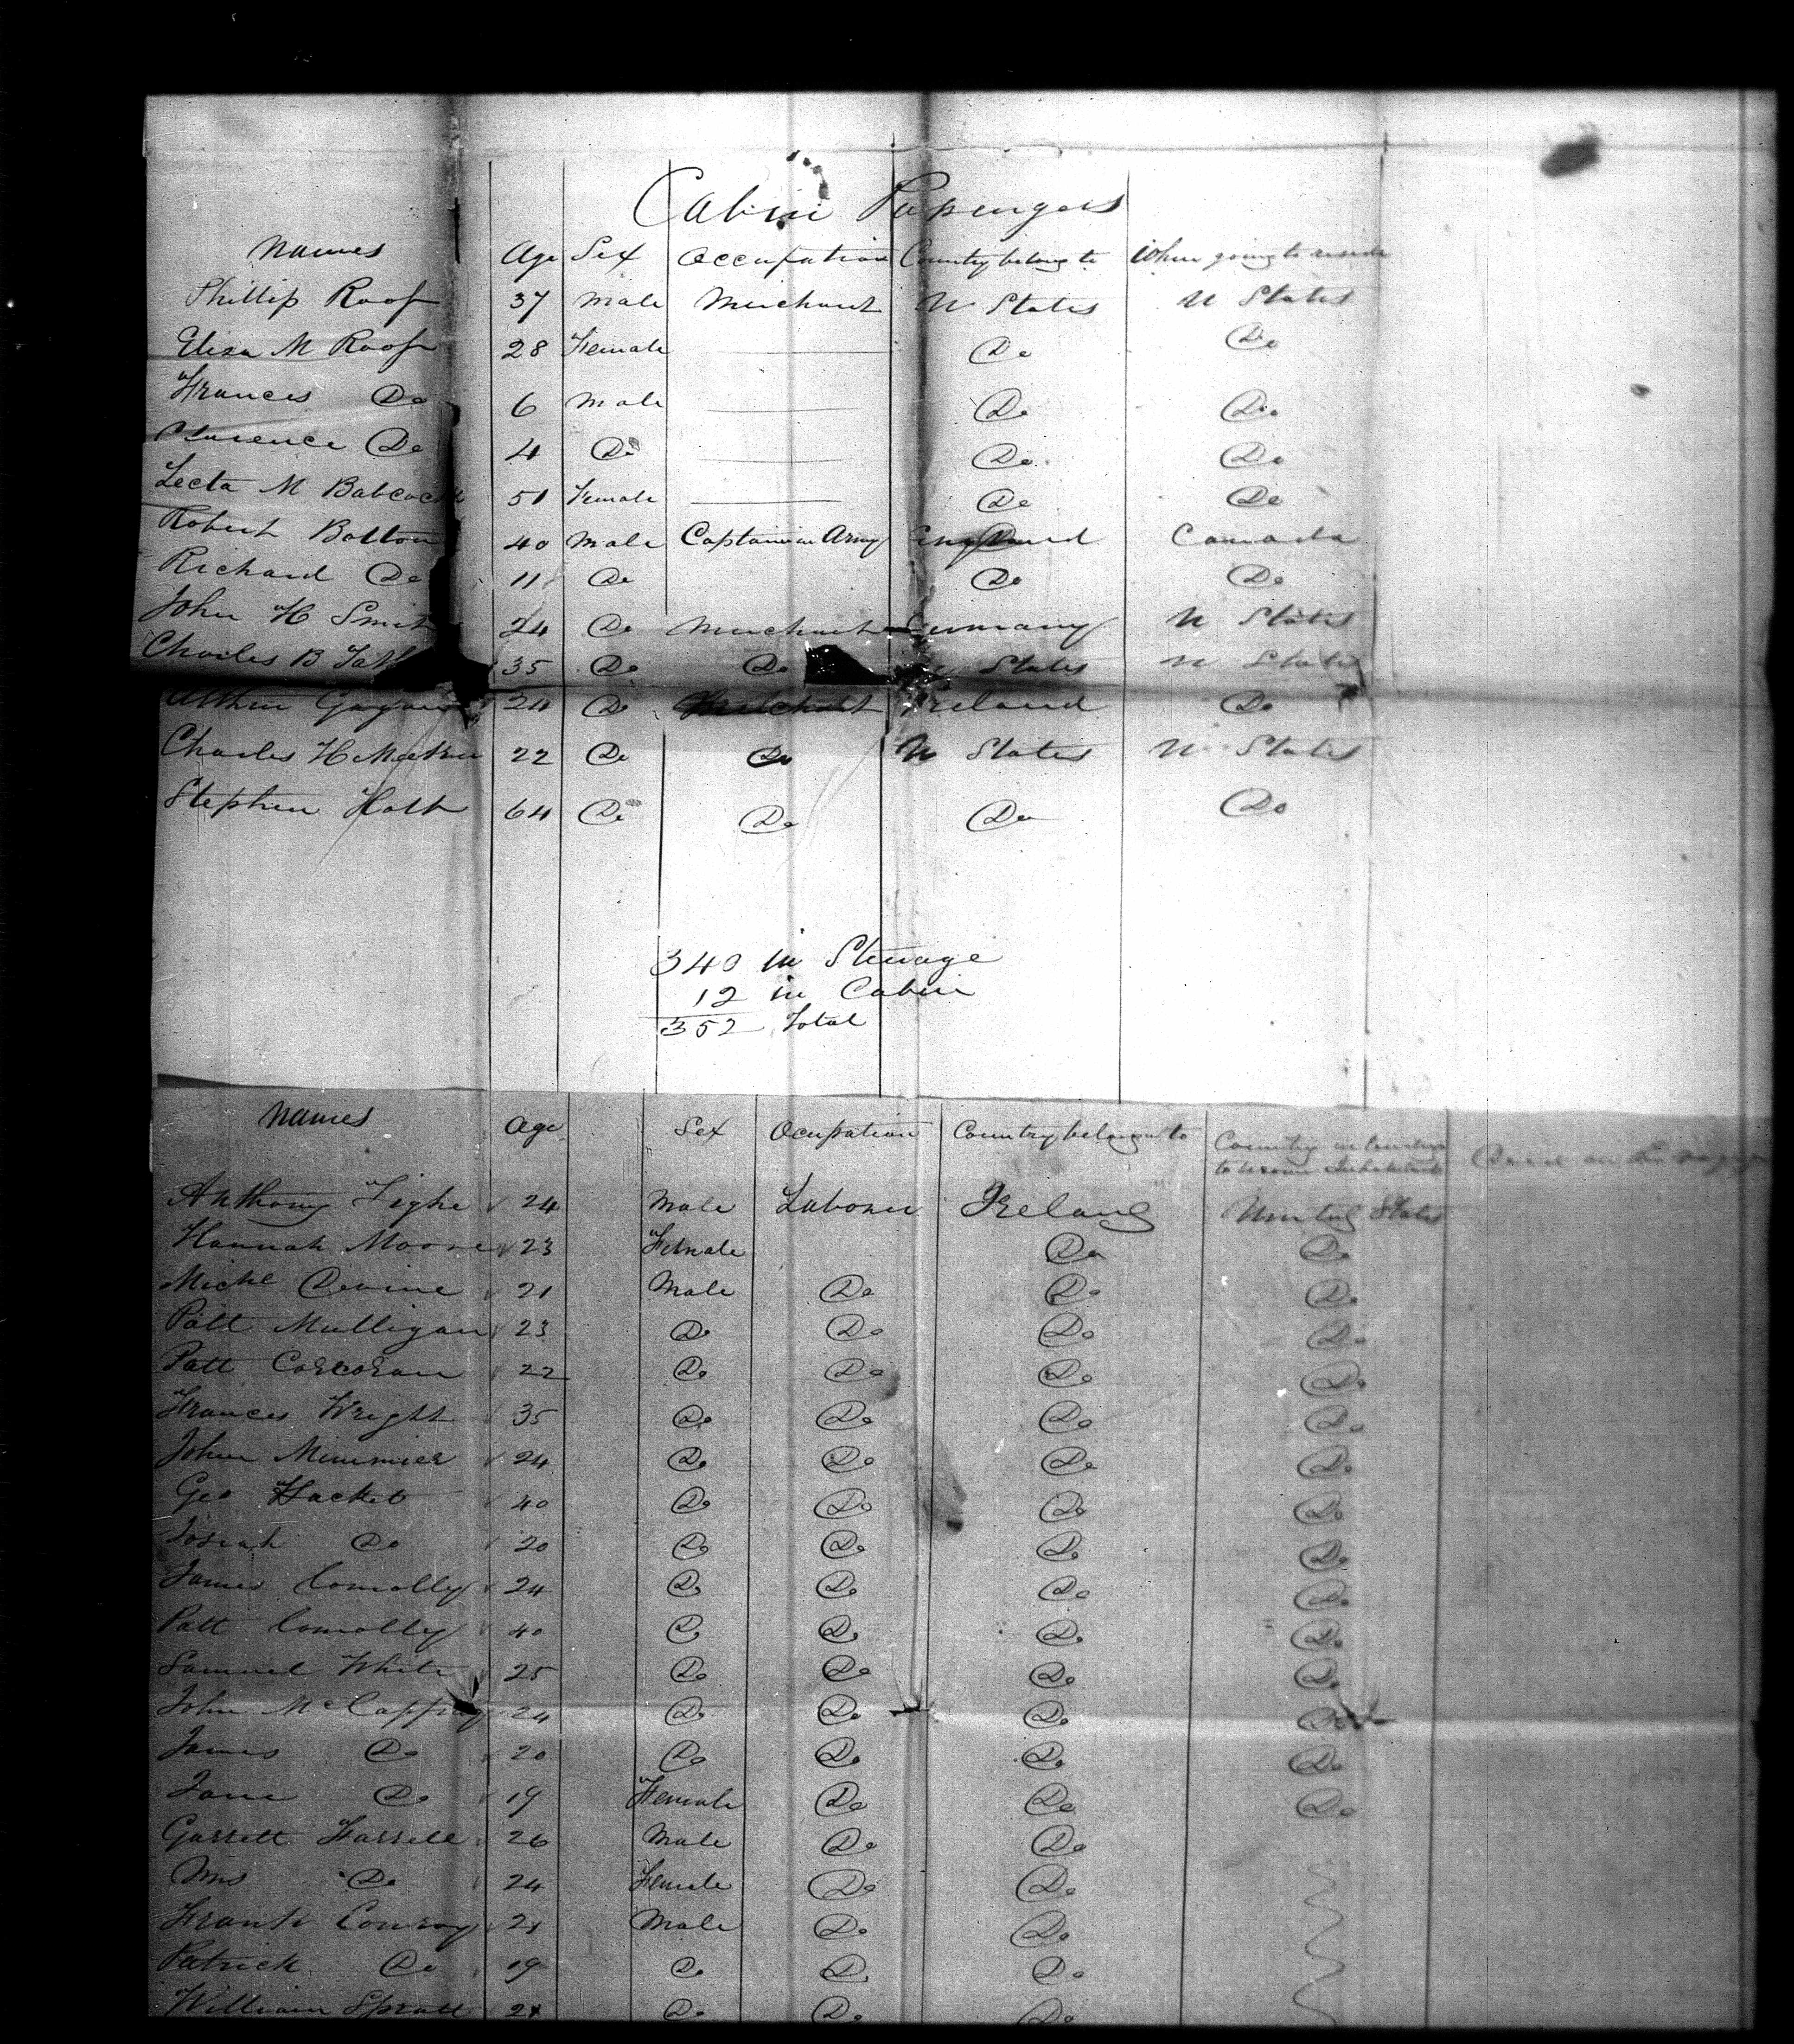 Cabin Passengers
Names Age Sex Occupation Country belong to Where going to reside
Phillip Roof 37 Male Merchant U States U States
Eliza M Roof 28 Female Do Do
Frances Do 6 Male Do Do
Clarence Do 4 Do Do Do
Lecta M Babcock 51 Female Do Do
Robert Bolton 40 Male Captain in Army England Canada
Richard Do 11 Do Do Do
John H Smith 24 Do Merchant Germany U States
Charles B 35 Do Do States U States
Arthur 24 Do Merchant Ireland Do
Charles H 22 Do Do U States U States
Stephen Holt 64 Do Do Do Do
340 in Steerage
12 in Cabin
352 Total
Names Age Sex Ocupation Country belongin to Country intending to become Inhabitants Died on the voyage
Anthony Tighe 24 Male Laborer Ireland United States
Hannah Moore 23 Female Do Do
Michl Devine 21 Male Do Do Do
Patt Mulligan 23 Do Do Do Do
Patt Corcoran 22 Do Do Do Do
Frances Wright 35 Do Do Do Do
John 24 Do Do Do Do
Geo Hacket 40 Do Do Do Do
Josiah Do 20 Do Do Do Do
James Connolly 24 Do Do Do Do
Patt Connolly 40 Do Do Do Do
Samuel White 25 Do Do Do Do
John McCaffrey 24 Do Do Do Do
James Do 20 Do Do Do Do
Jane Do 19 Female Do Do Do
Garrett Farrell 26 Male Do Do
Mrs Do 24 Female Do Do
Frank Conroy 21 Male Do Do
Patrick Do 19 Do Do Do
William Spratt 21 Do Do Do